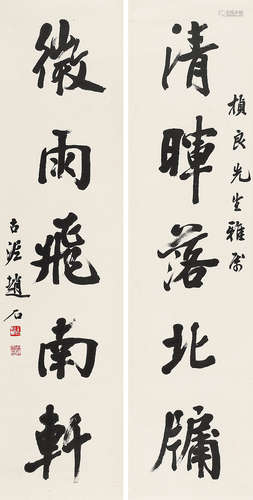 楨良先生雅屬
清暉落北牖
微雨飛南軒
古泥趙石